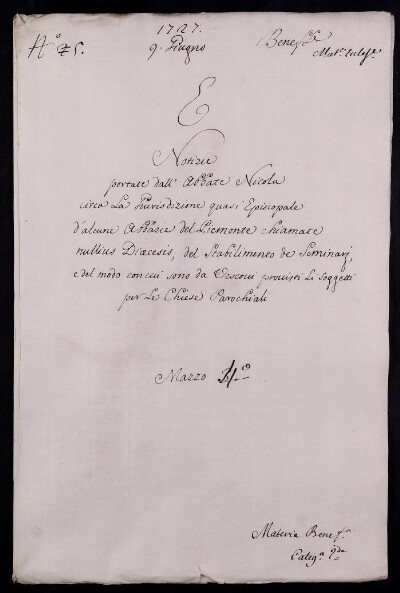 1727.
9. Giugno
N.° 25.
E
Notizie
portate dall' Abbate Nicola
circa La Giurisdizione quasi Episcopale
d'alcune Abbazie del Piemonte chiamate
nullius Diœcesis, del Stabilimento de Seminarj,
e del modo con cui sono da Vescovi provisti Li soggetti
per Le Chiese Parochiali
Mazzo
Materia Benef.ª
Categ.ª